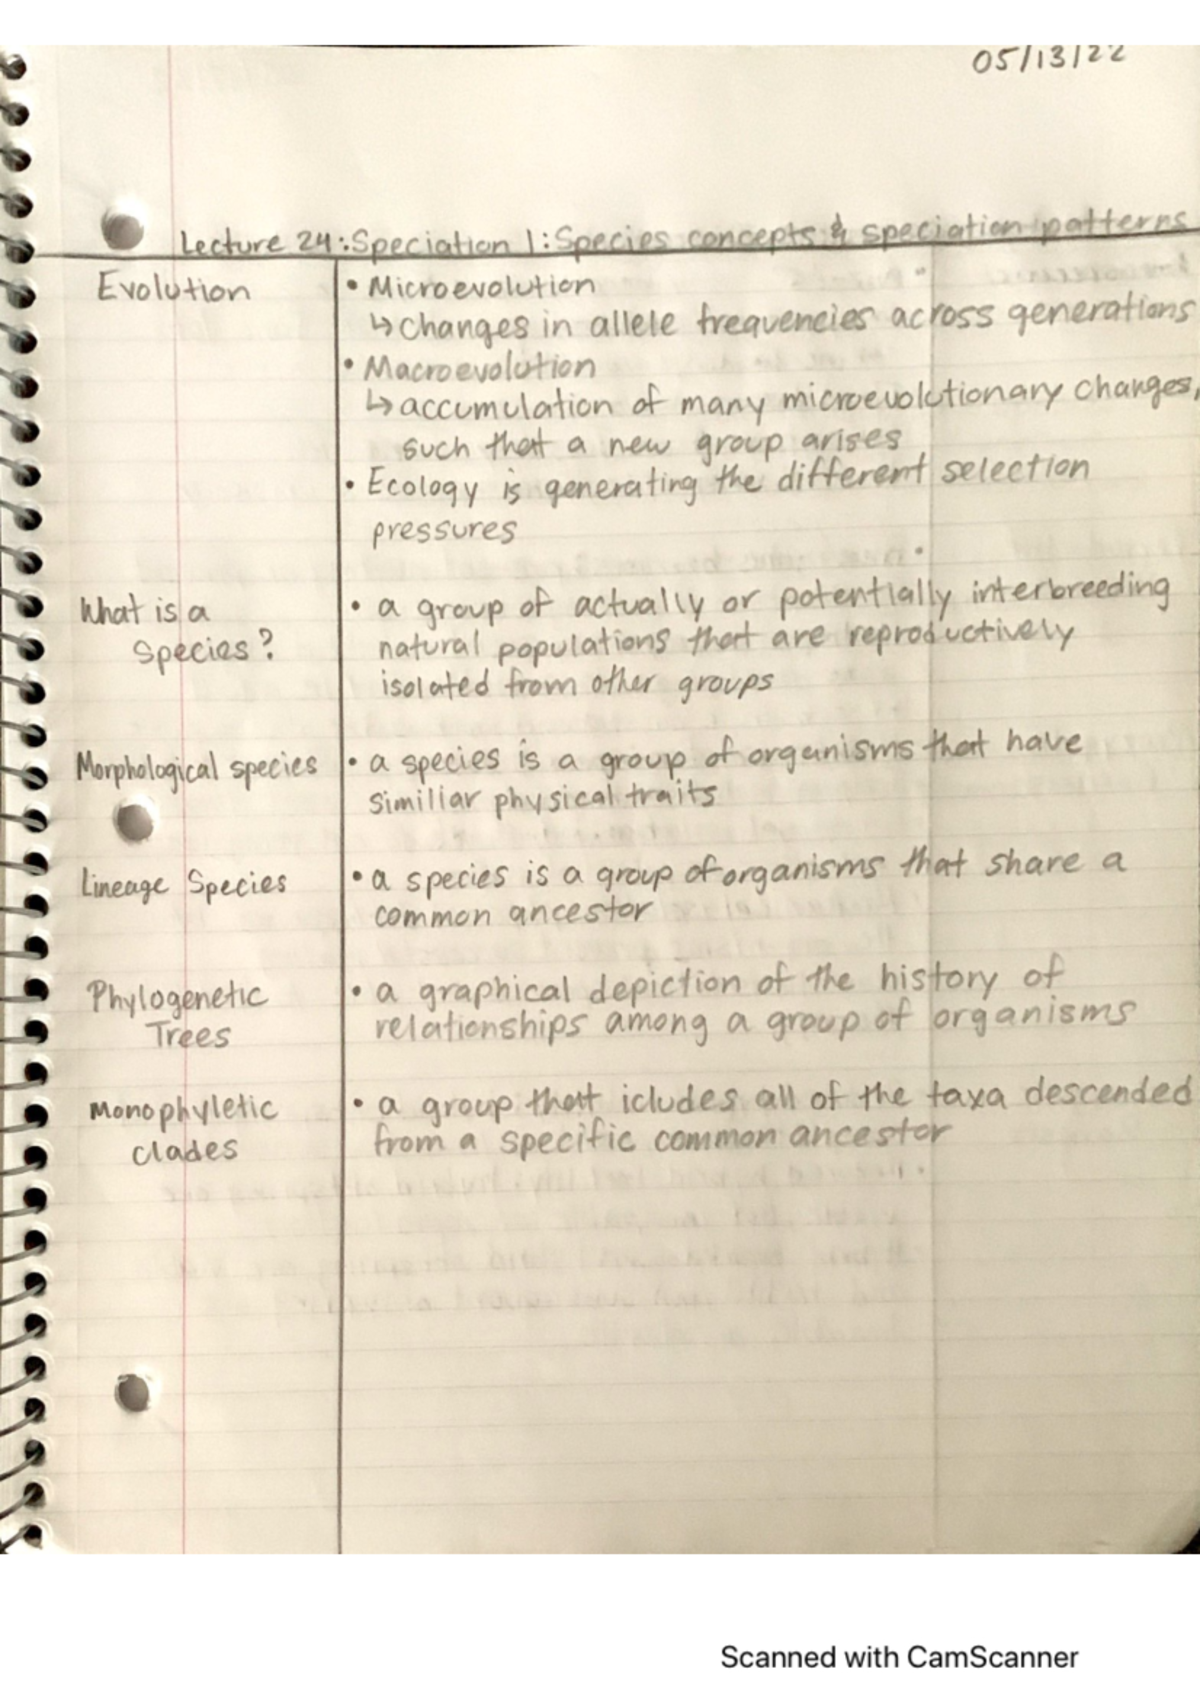 05/13/22
Lecture 24: Speciation 1: Species concepts & speciation patterns
Evolution
• Microevolution
↳ changes in allele frequencies across generations
• Macroevolution
↳ accumulation of many microevolutionary changes,
such that a new group arises
• Ecology is generating the different selection
pressures
What is a
Species?
• a group of actually or potentially interbreeding
natural populations that are reproductively
isolated from other groups
Morphological species
• a species is a group of organisms that have
similiar physical traits
Lineage Species
• a species is a group of organisms that share a
common ancestor
Phylogenetic
Trees
• a graphical depiction of the history of
relationships among a group of organisms
Monophyletic
clades
• a group that icludes all of the taxa descended
from a specific common ancestor
Scanned with CamScanner